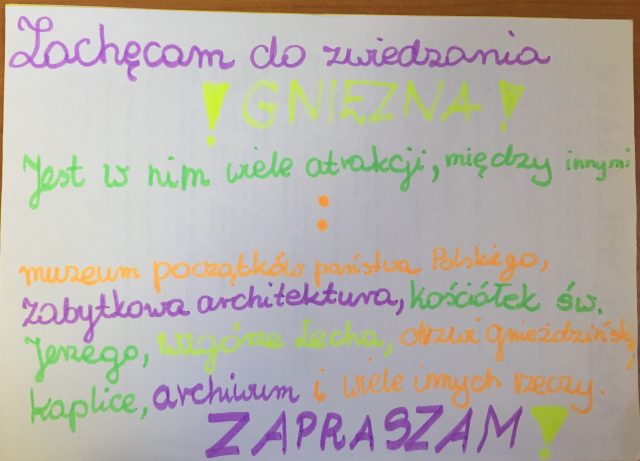 Zachęcam do zwiedzania
! GNIEZNA !
Jest w nim wiele atrakcji, między innymi
:
muzeum początków państwa Polskiego,
zabytkowa architektura, kościółek św.
Jerzego, wzgórze Lecha, drzwi gnieździńskie,
kaplice, archiwum i wiele innych rzeczy.
ZAPRASZAM!